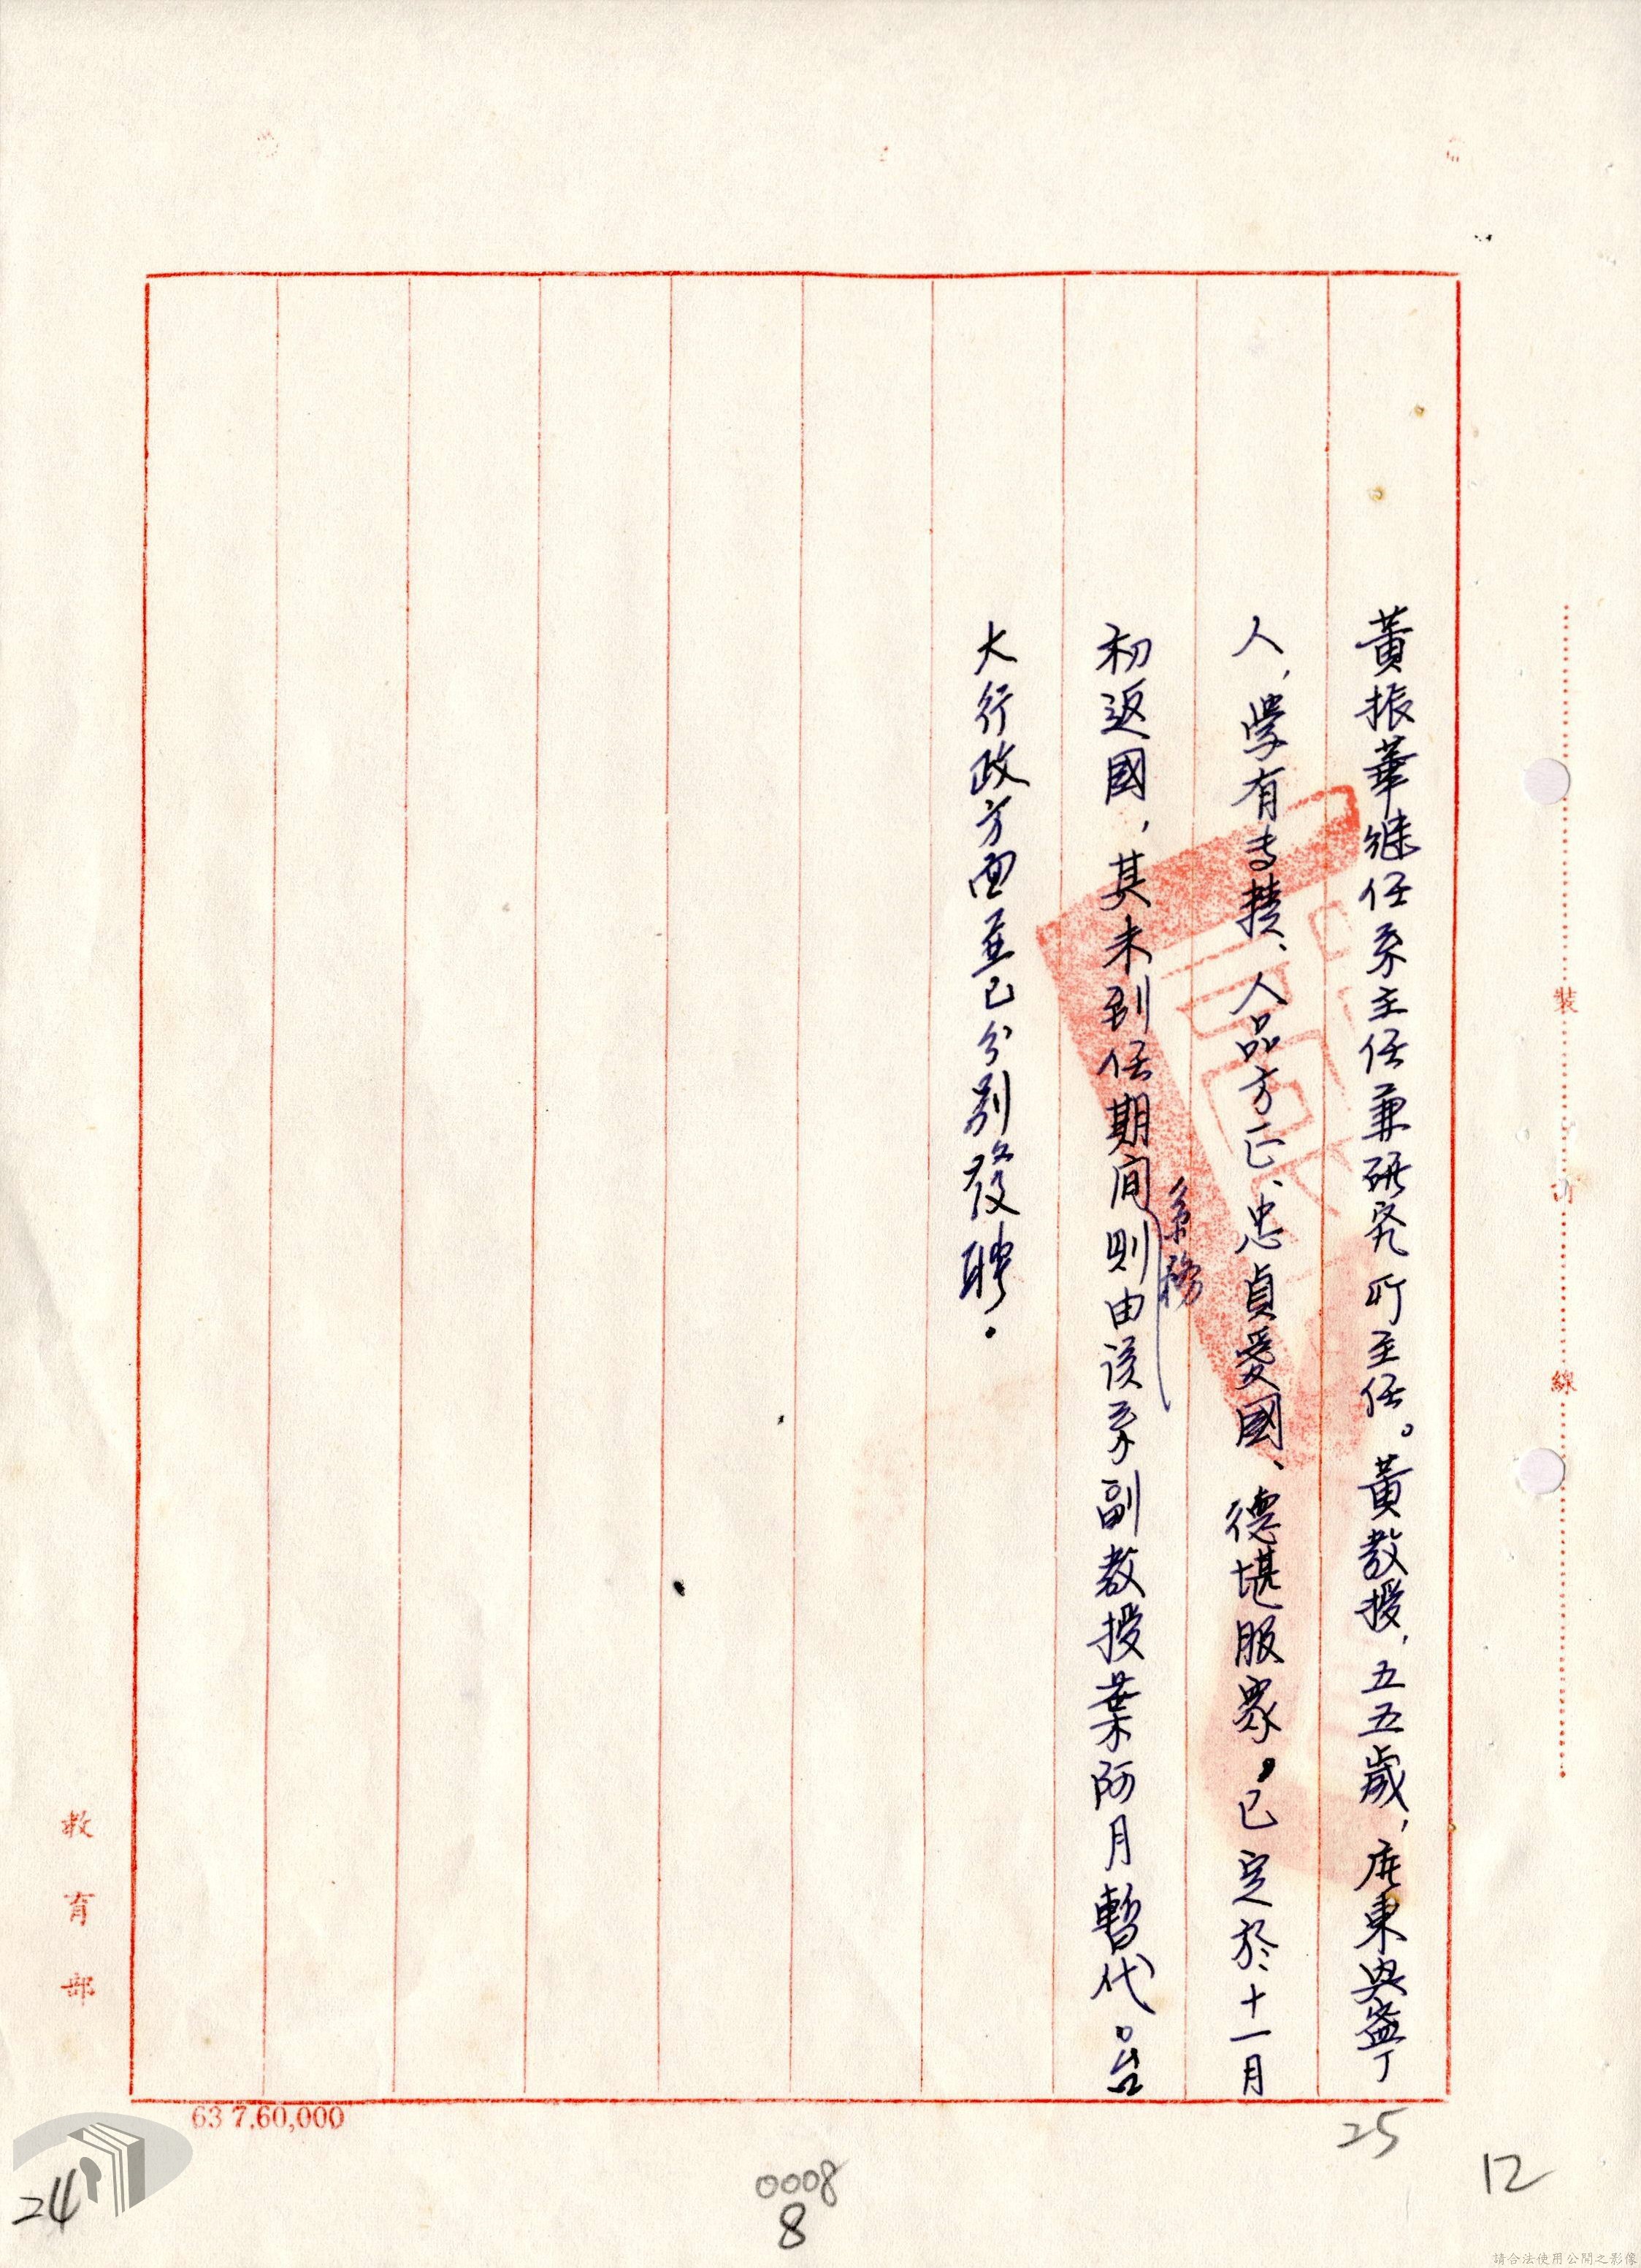 黃振華继任系主任兼研究所主任。黃教授，五五歲，廣東興寧
人，學有專攻、人品方正、忠貞愛國、德堪服眾。已定於十一月
初返國，其未到任期间系務則由该系副教授葉阿月暫代。台
大行政方面並已分別發聘。
裝
訂
線
教育部
63 7,60,000
25
12
24
0008
8
請合法使用公開之影像